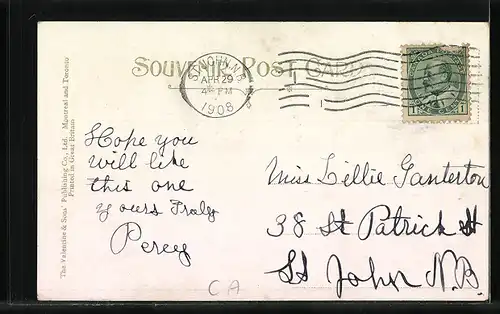 SOUVENIR POST CARD
ST. JOHN, N.B.
APR 29
4 PM
1908
The Valentine & Sons' Publishing Co., Ltd. Montreal and Toronto
Printed in Great Britain
Hope you
will like
this one
yours Truly
Percy
Miss Lillie Ganterton
38 St Patrick St
St John N.B.
CA